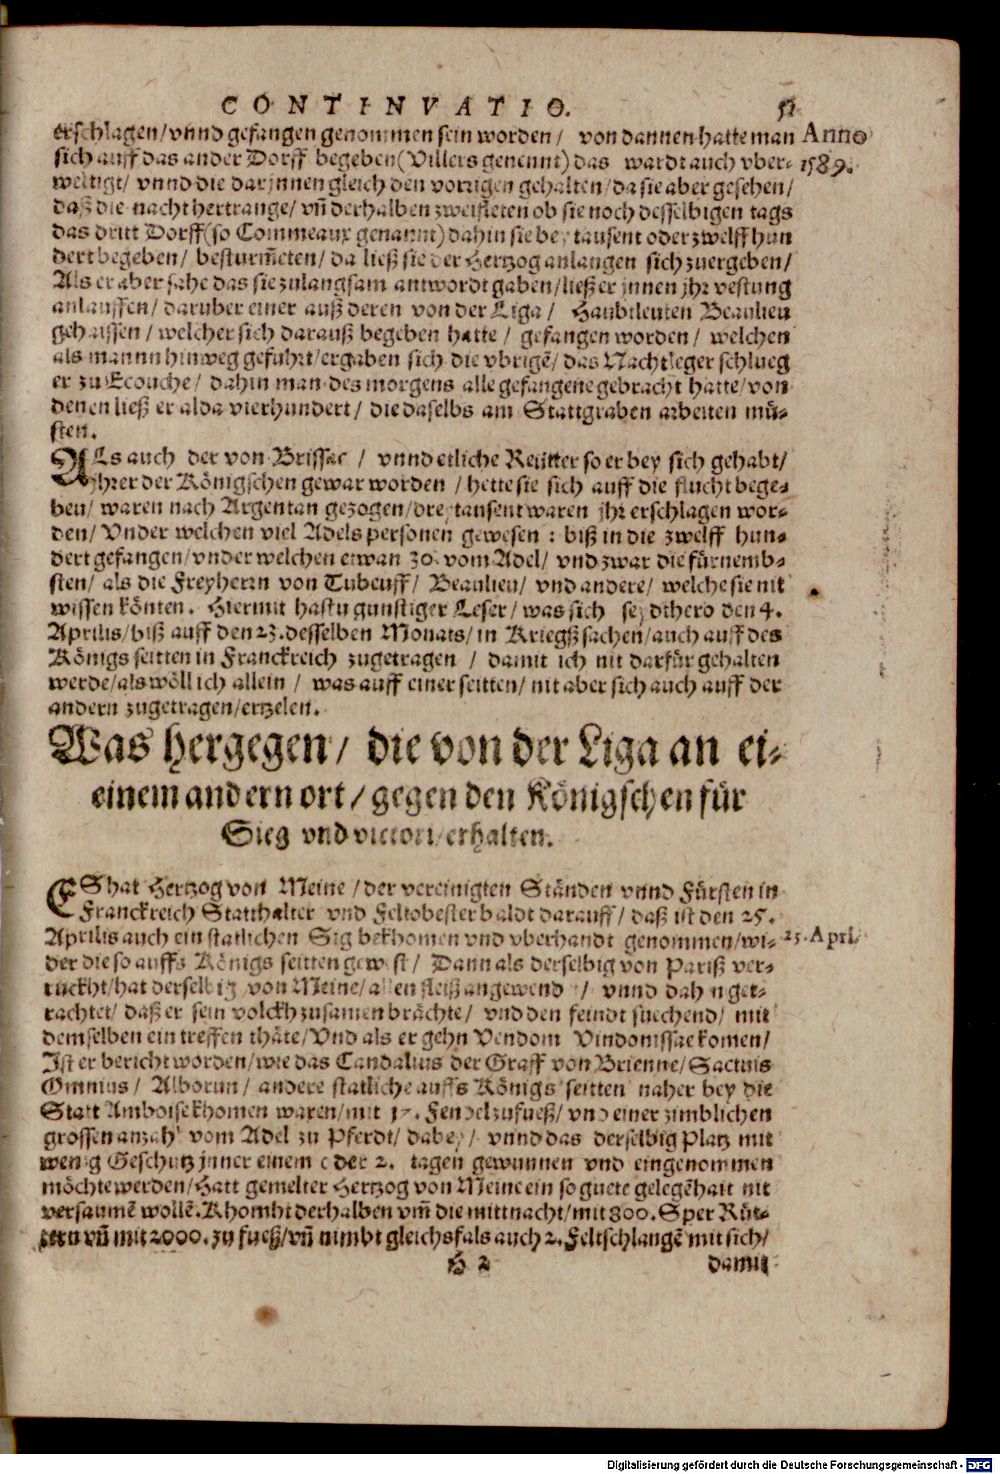 CONTINVATIO. 51
erschlagen/ vnnd gefangen genommen sein worden/ von dannen hatte man Anno
sich auff das ander Dorff begeben (Villers genennt) das wardt auch vber- 1589.
weltigt/ vnnd die darjnnen gleich den vorigen gehalten/ da sie aber gesehen/
daß die nacht hertrange/ vñ derhalben zweifleten ob sie noch desselbigen tags
das dritt Dorff (so Commeaux genannt) dahin sie bey tausent oder zwelff hun
dert begeben/ bestürm̃eten/ da ließ sie der Hertzog anlangen sich zuergeben/
Als er aber sahe das sie zulangsam antwordt gaben/ ließ er jnnen jhr vestung
anlauffen/ daruber einer auß deren von der Liga/ Haubtleuten Beaulieu
gehaissen/ welcher sich darauß begeben hatte/ gefangen worden/ welchen
als man nn hinweg gefuhrt/ ergaben sich die vbrigẽ/ das Nachtleger schlueg
er zu Ecouche/ dahin man des morgens alle gefangene gebracht hatte/ von
denen ließ er alda vierhundert/ die daselbs am Stattgraben arbeiten mü-
sten.
ALs auch der von Brissac/ vnnd etliche Reütter so er bey sich gehabt/
jhrer der Königschen gewar worden/ hette sie sich auff die flucht bege-
ben/ waren nach Argentan gezogen/ drey tausent waren jhr erschlagen wor-
den/ Vnder welchen viel Adels personen gewesen: biß in die zwelff hun-
dert gefangen/ vnder welchen etwan 30. vom Adel/ vnd zwar die fürnemb-
sten/ als die Freyherrn von Tubeuff/ Beaulieu/ vnd andere/ welche sie nit
wissen könten. Hiermit hastu gunstiger Leser/ was sich seydthero den 4.
Aprilis/ biß auff den 23. desselben Monats/ in Kriegßsachen/ auch auff des
Königs seitten in Franckreich zugetragen/ damit ich nit darfür gehalten
werde/ als wöll ich allein/ was auff einer seitten/ nit aber sich auch auff der
andern zugetragen/ ertzelen.
Was hergegen/ die von der Liga an ei-
einem andern ort/ gegen den Königschen für
Sieg vnd victori/ erhalten.
ES hat Hertzog von Meine/ der vereinigten Ständen vnnd Fürsten in
Franckreich Statthalter vnd Feltobester baldt darauff/ daß ist den 25.
Aprilis auch ein statlichen Sig bekhomen vnd vberhandt genommen/ wi- 25. April.
der die so auffs Königs seitten gewest/ Dann als derselbig von Pariß ver-
ruckht/ hat derselbig von Meine/ allen fleiß angewend/ vnnd dahin get-
rachtet/ daß er sein volckh zusamen brächte/ vnd den feindt suechend/ mit
demselben ein treffen thäte/ Vnd als er gehn Vendom Vindonissae komen/
Ist er bericht worden/ wie das Candalius der Graff von Brienne/ Sactuis
Omnius/ Alborun/ andere statliche auffs Königs seitten naher bey die
Statt Amboise khomen waren/ mit Fendel zufueß/ vnd einer zimblichen
grossen anzahl vom Adel zu Pferdt/ dabey/ vnnd das derselbig Platz mit
wenig Geschutz jnner einem oder 2. tagen gewunnen vnd eingenommen
möchte werden/ Hatt gemelter Hertzog von Meine ein so guete gelegẽhait nit
versaumẽ wollẽ. Khombt derhalben vm̃ die mittnacht/ mit 800. Sper Rüt-
tern vñ mit 2000. zu fueß/ vñ nimbt gleichsfals auch 2. Feltschlangẽ mit sich/
H 2 damit
Digitalisierung gefördert durch die Deutsche Forschungsgemeinschaft - DFG